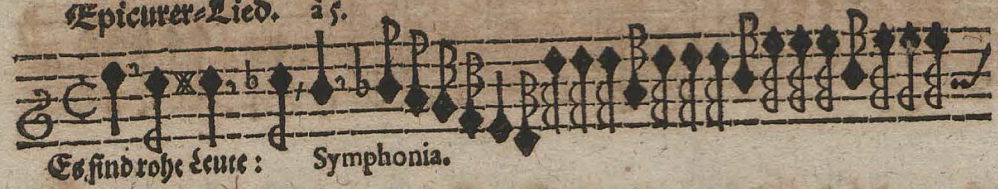 Epicurer-Lied. à 5.
Es sind rohe Leute: Symphonia.